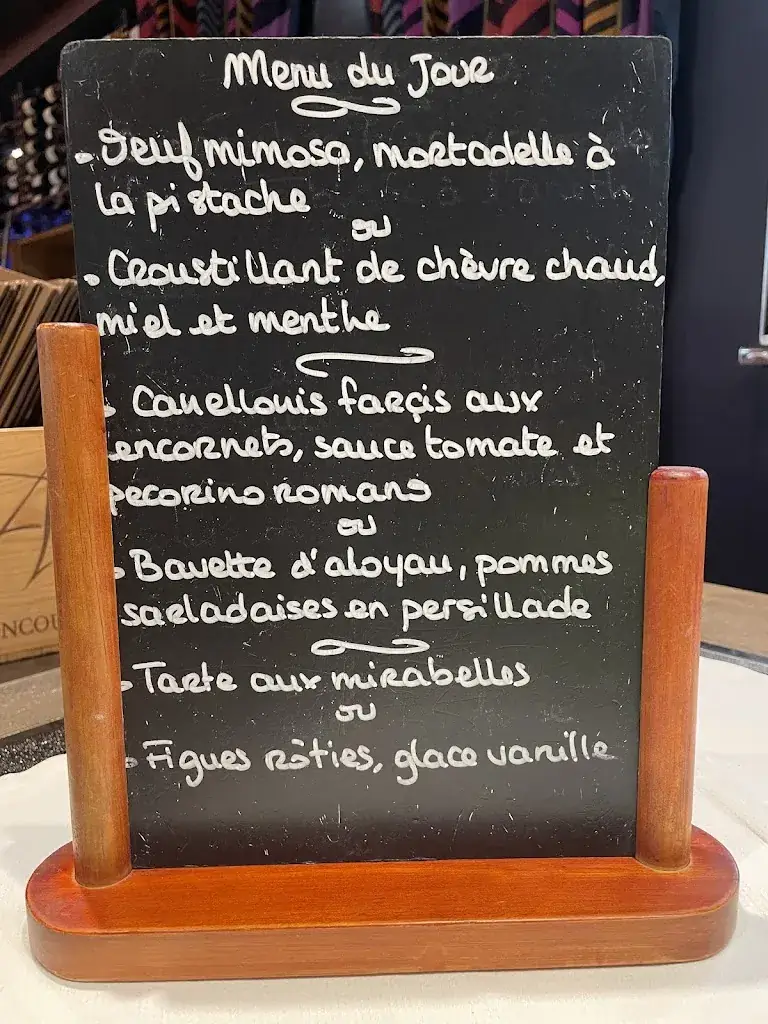 Menu du Jour
• Oeuf mimosa, mortadelle à
la pistache
ou
• Croustillant de chèvre chaud,
miel et menthe
• Canellonis farçis aux
encornets, sauce tomate et
pecorino romano
ou
• Bavette d'aloyau, pommes
sarladaises en persillade
• Tarte aux mirabelles
ou
• Figues rôties, glace vanille
NCOU